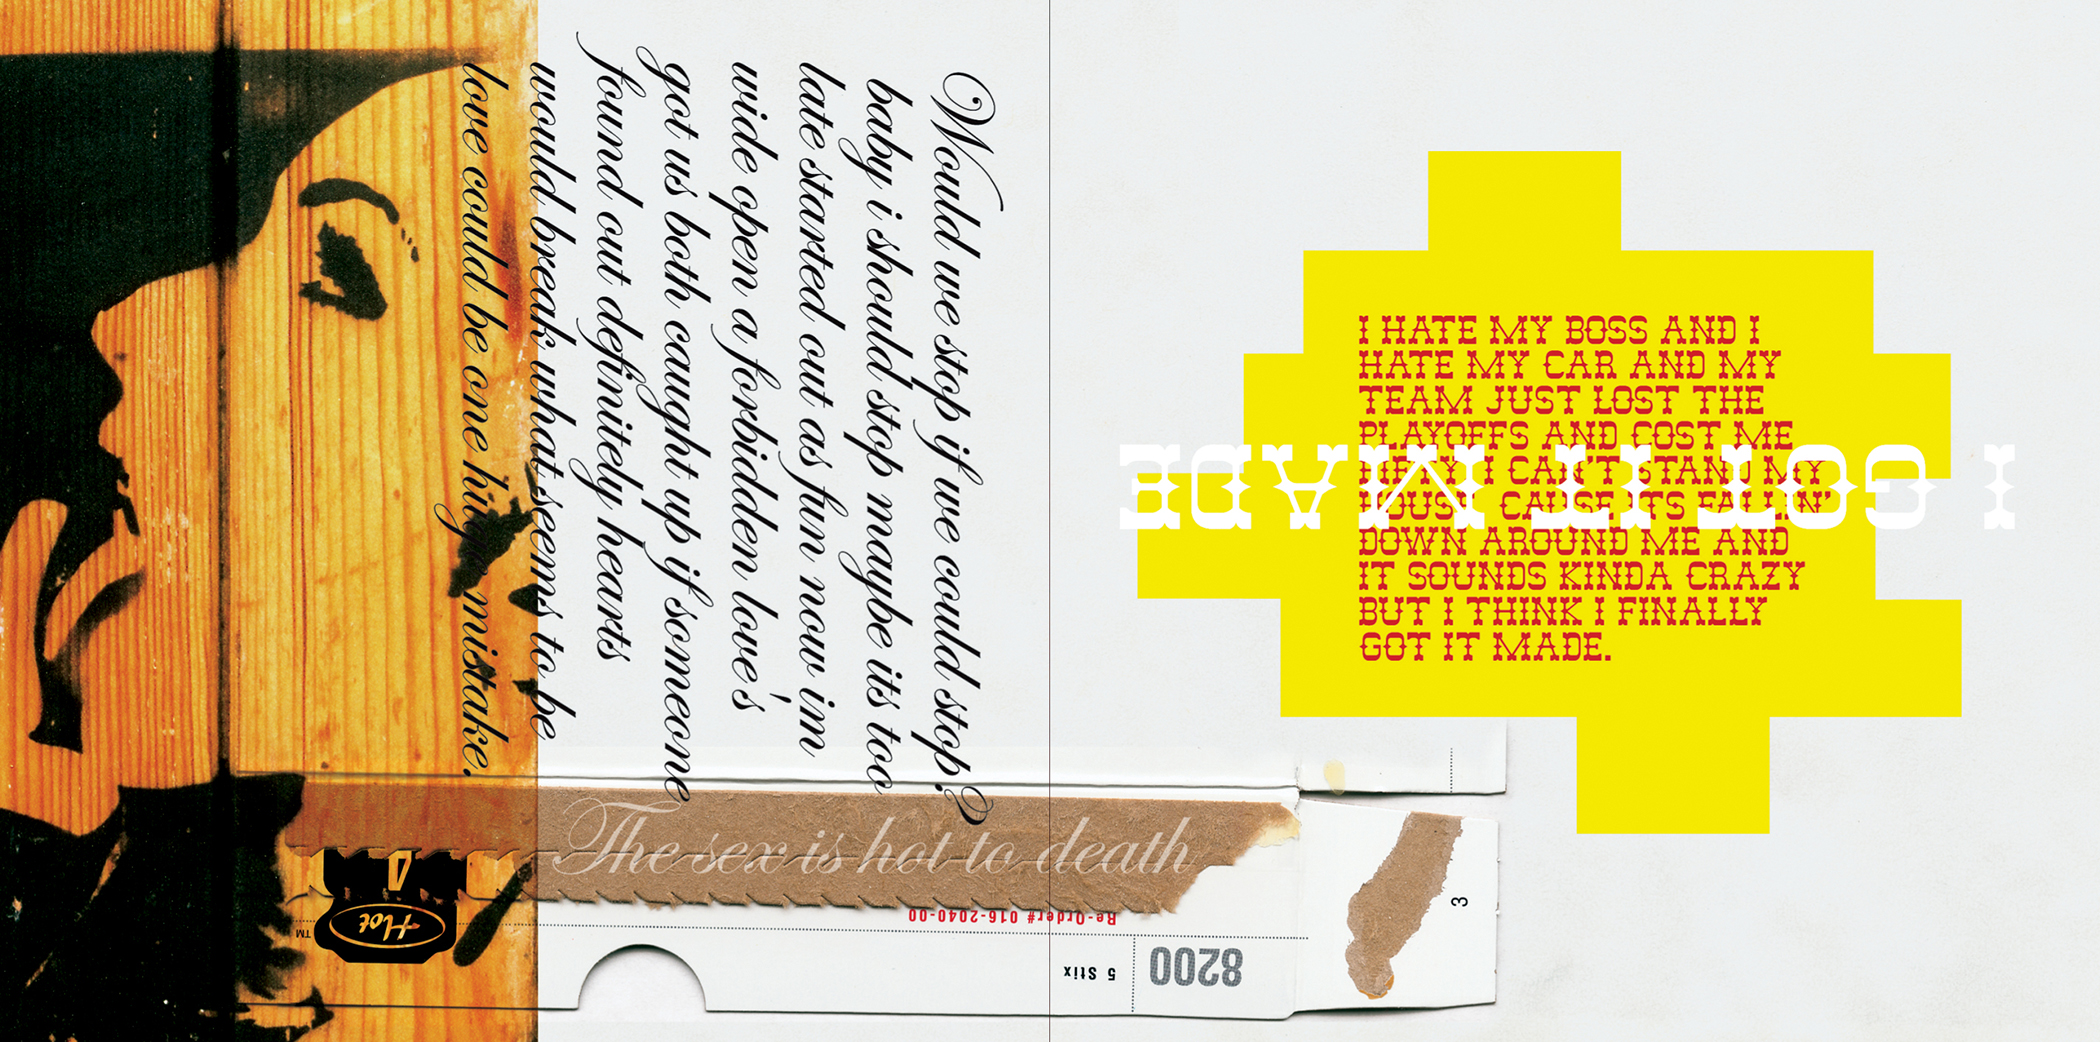 Would we stop if we could stop?
baby i should stop maybe its too
late started out as fun now im
wide open a forbidden love's
got us both caught up if someone
found out definitely hearts
would break what seems to be
love could be one huge mistake.
The sex is hot to death
Hot
TM
Re-Order# 016-2040-00
5 Stix
8200
3
I HATE MY BOSS AND I
HATE MY CAR AND MY
TEAM JUST LOST THE
PLAYOFFS AND COST ME
FIFTY. I CAN'T STAND MY
HOUSE CAUSE ITS FALLIN'
DOWN AROUND ME AND
IT SOUNDS KINDA CRAZY
BUT I THINK I FINALLY
GOT IT MADE.
I GOT IT MADE